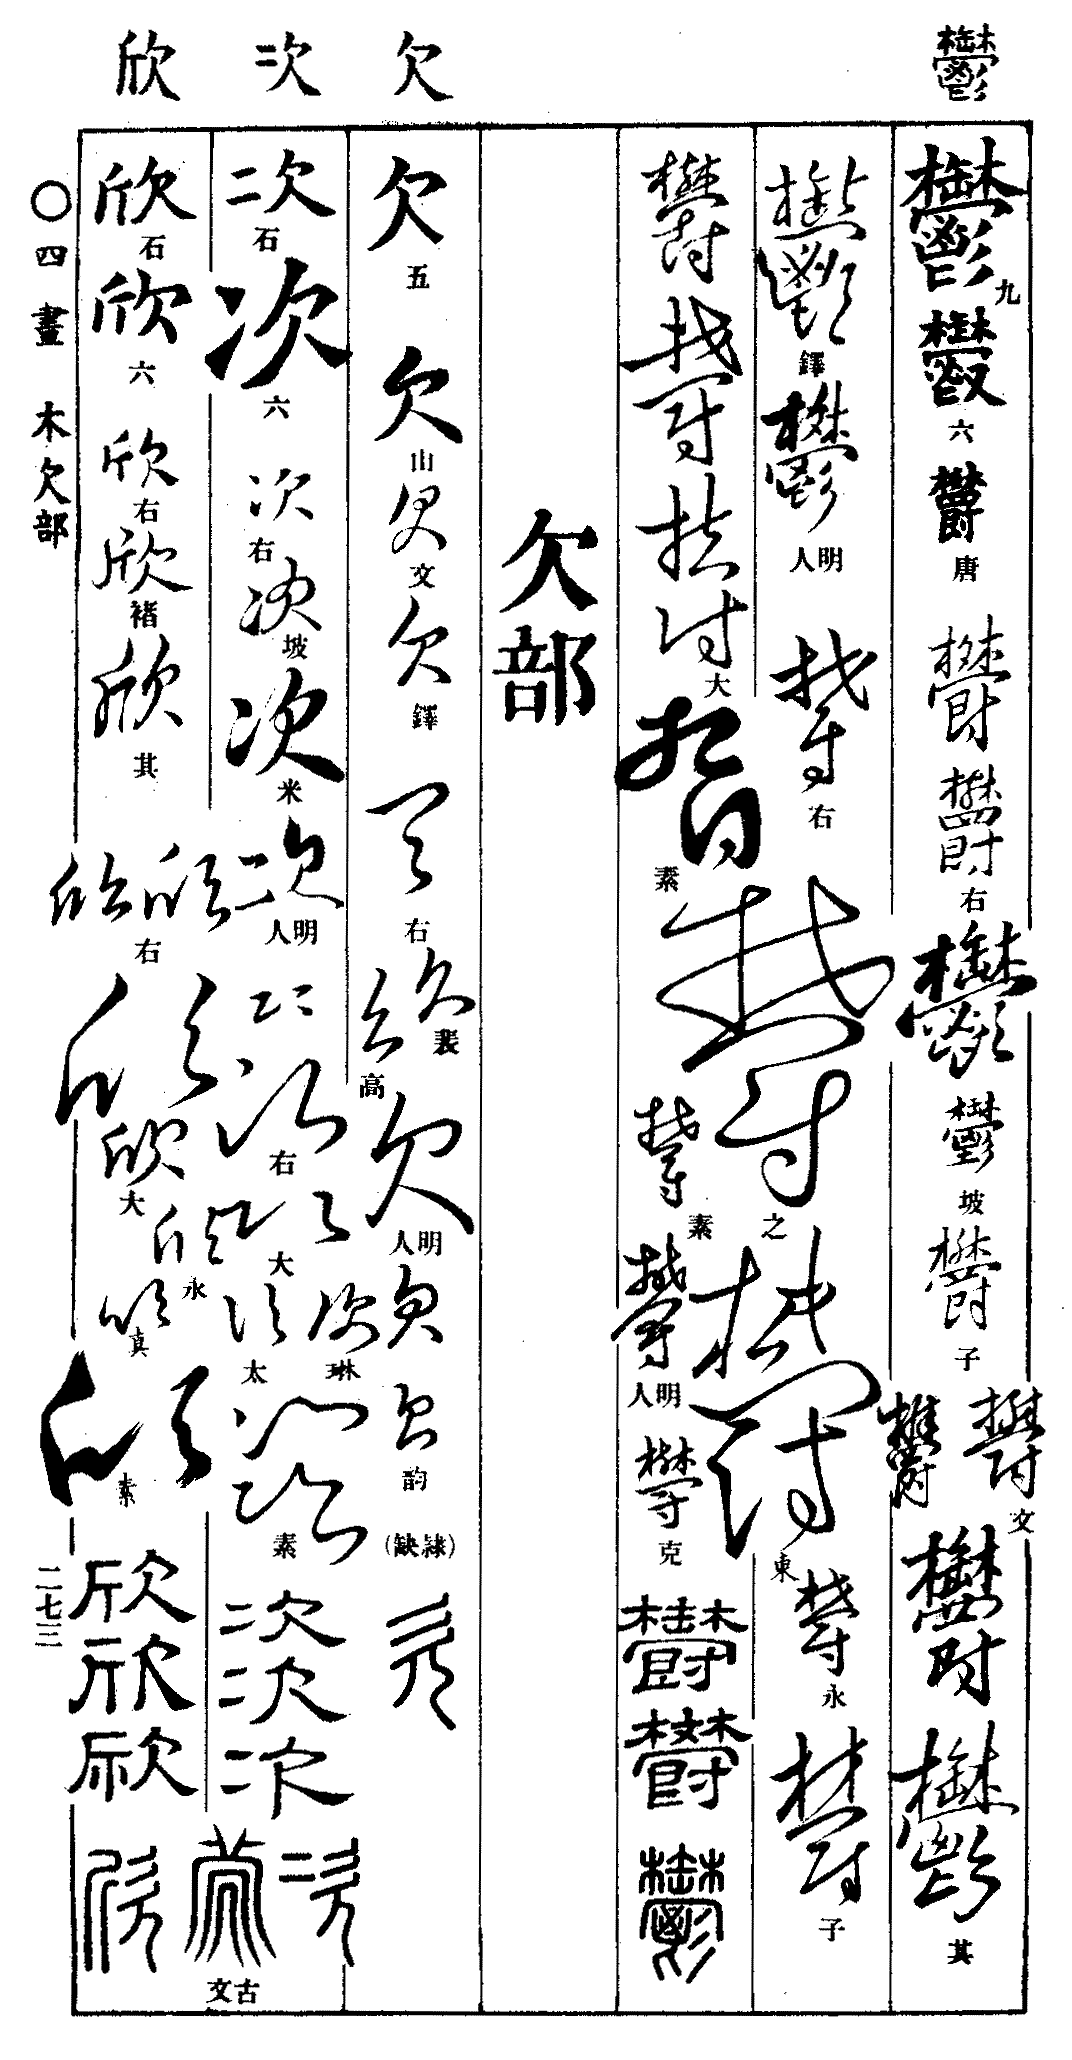 鬱 欠 次 欣
鬱 九
鬱 六
鬱 唐
鬱
鬱 右
鬱
鬱 坡
鬱 子
鬱 鬱 文
鬱
鬱 其
鬱 鐸
鬱 明人
鬱 右
鬱 之
鬱 東
鬱 永
鬱 子
鬱
鬱
鬱 大
鬱 素
鬱 素
鬱 明人
鬱 克
鬱
鬱
鬱
欠部
欠 五
欠 山
欠 文
欠 鐸
欠 右
欠 裴
欠 高
欠 明人
欠
欠 韵
(隷缺)
欠
次 石
次 六
次 右
次 坡
次 米
次 明人
次
次 右
次 大
次 琳
次 太
次
次 素
次
次
次
次
次 古文
欣 石
欣 六
欣 右
欣 褚
欣 其
欣 欣 右
欣
欣 大
欣 永
欣 真
欣 素
欣
欣
欣
欣
〇四畫 木欠部
二七三